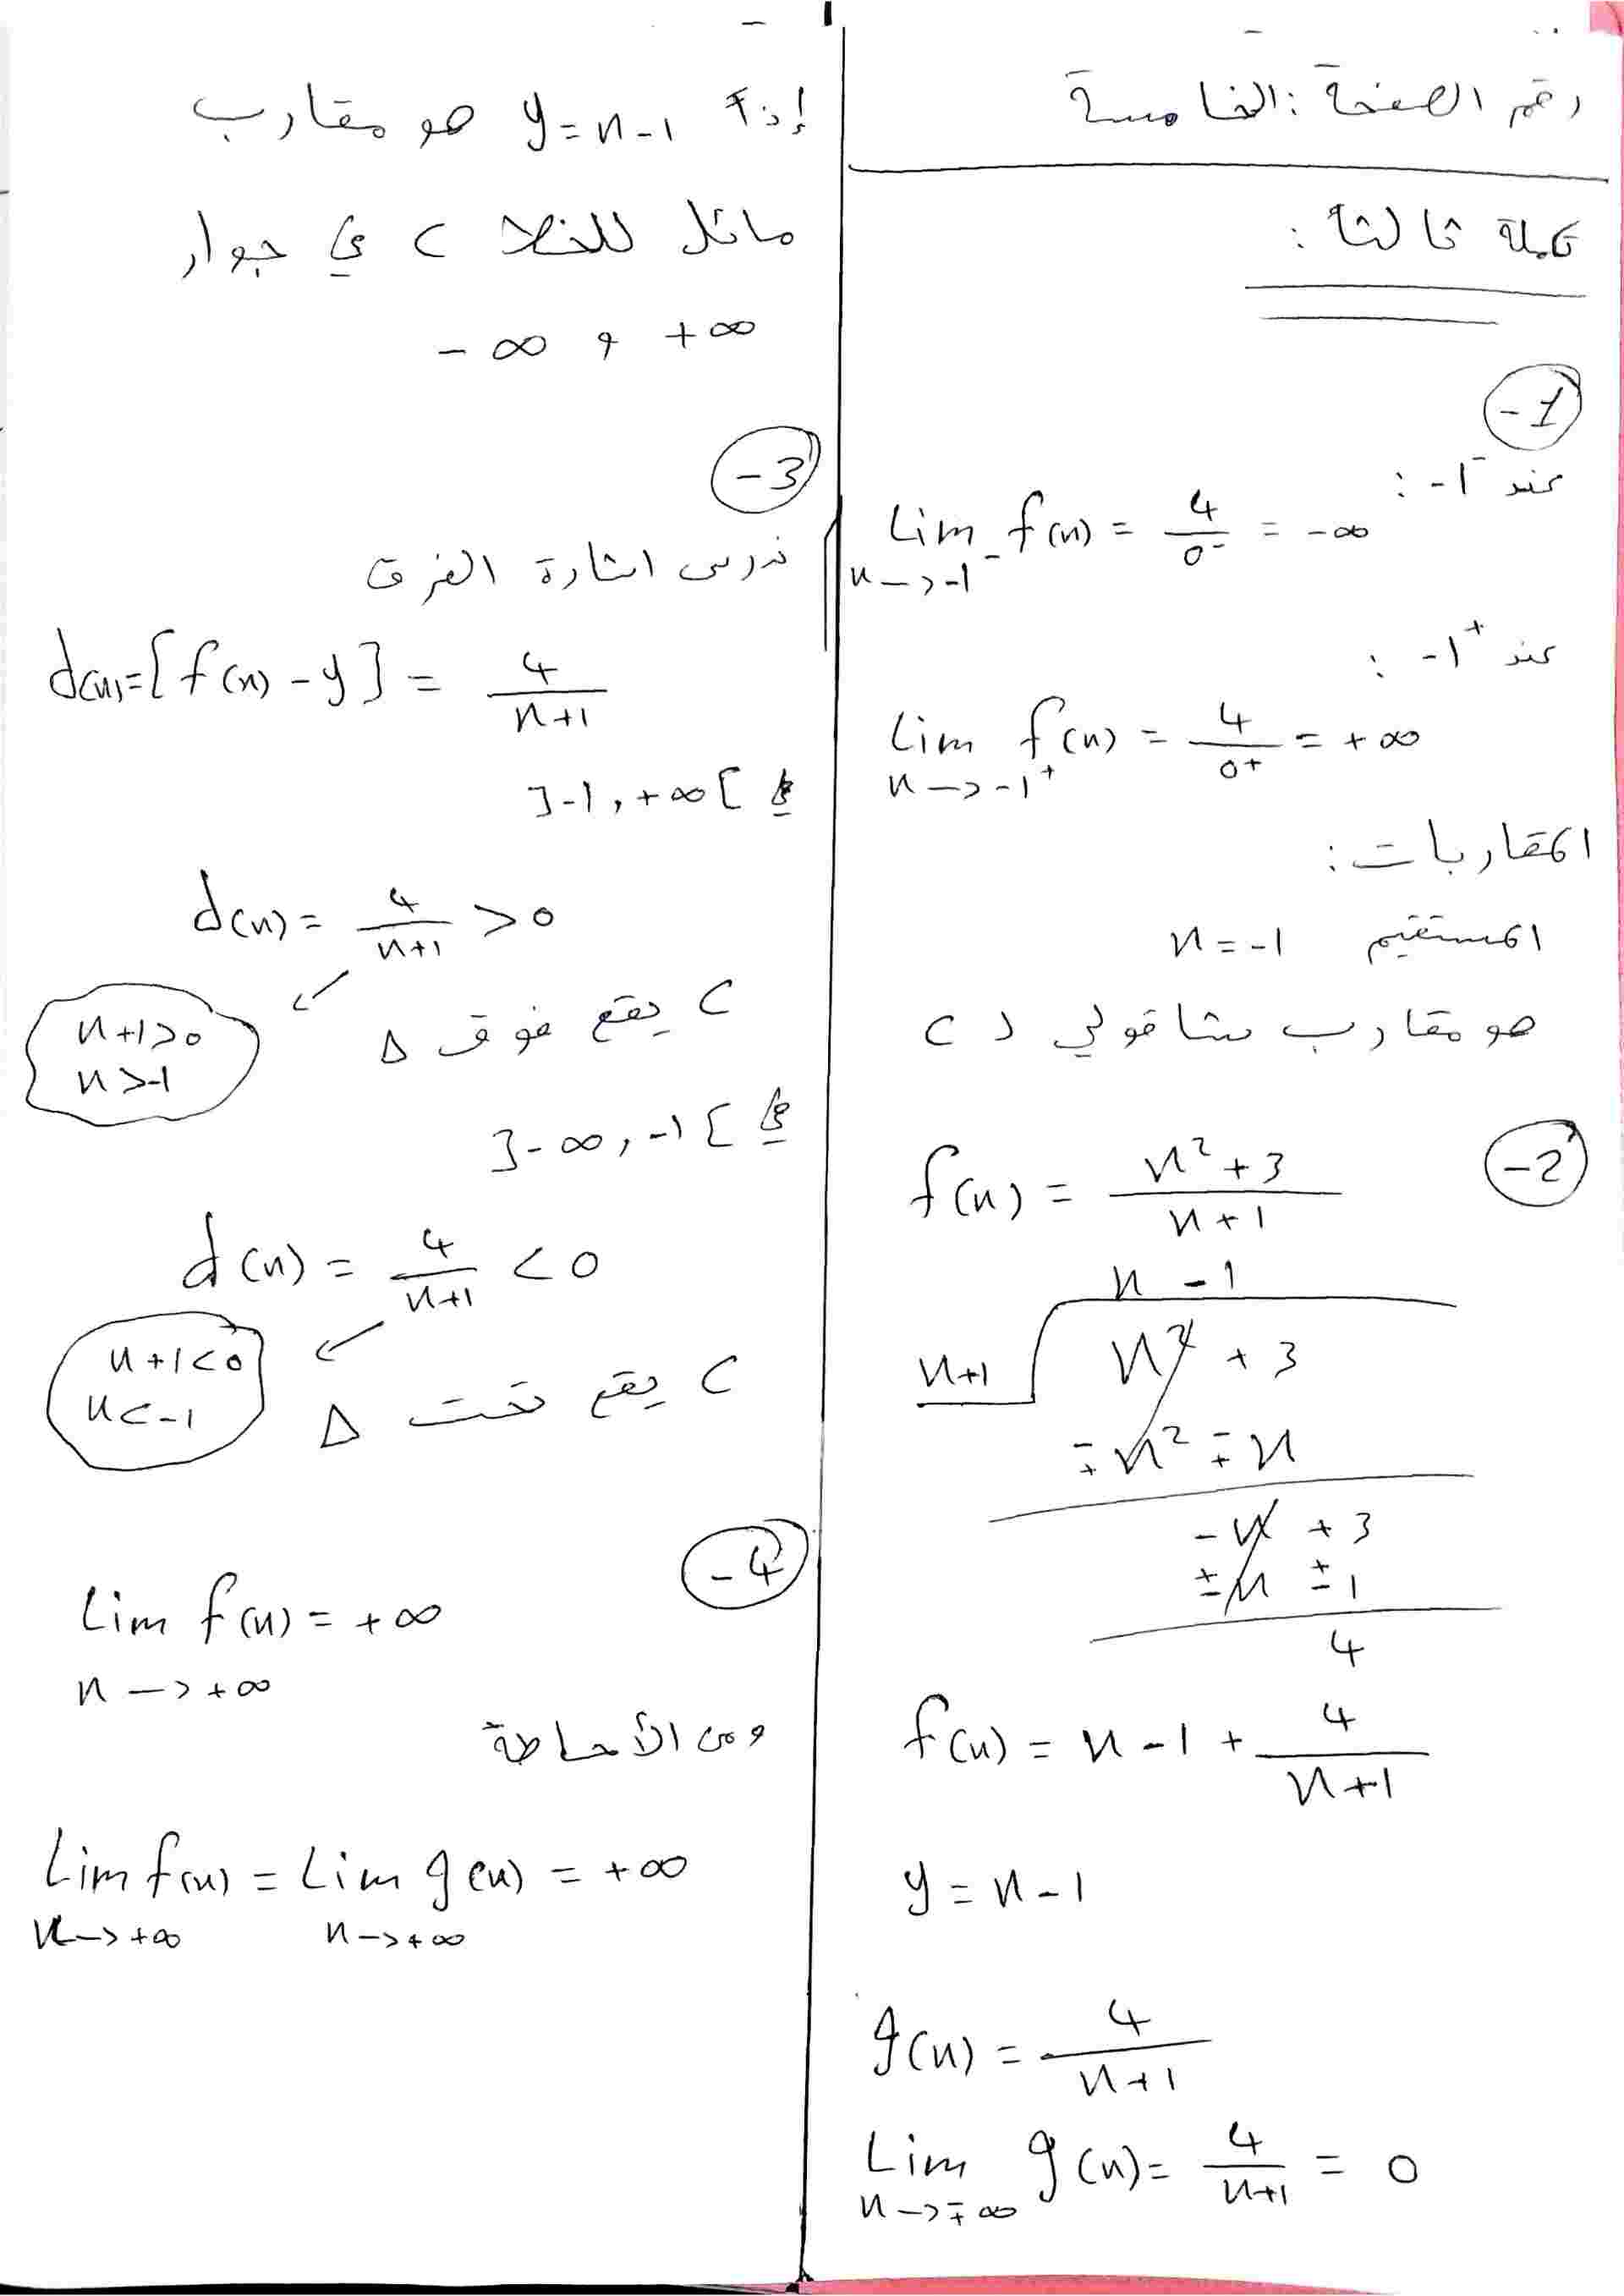 رقم الصفحة : الخامسة
تكملة ثالثاً :
-1
عند -1⁻ :
Lim f(x) = 4/0⁻ = -∞
x -> -1⁻
عند -1⁺ :
Lim f(x) = 4/0⁺ = +∞
x -> -1⁺
المقاربات :
المستقيم x = -1
هو مقارب شاقولي لـ C
-2
f(x) = x² + 3 / x + 1
x - 1
x+1 x² + 3
∓x² ∓ x
-x + 3
±x ± 1
4
f(x) = x - 1 + 4/x+1
y = x - 1
g(x) = 4/x+1
Lim g(x) = 4/x+1 = 0
x -> ∓∞
إذاً y = x - 1 هو مقارب
مائل للخط C في جوار
+∞ و -∞
-3
ندرس اشارة الفرق
d(x) = [f(x) - y] = 4/x+1
في ]-1, +∞[
d(x) = 4/x+1 > 0
x+1>0
x>-1
C يقع فوق Δ
في ]-∞, -1[
d(x) = 4/x+1 < 0
x+1<0
x<-1
C يقع تحت Δ
-4
Lim f(x) = +∞
x -> +∞
ومن الأحاطة
Lim f(x) = Lim g(x) = +∞
x -> +∞ x -> +∞